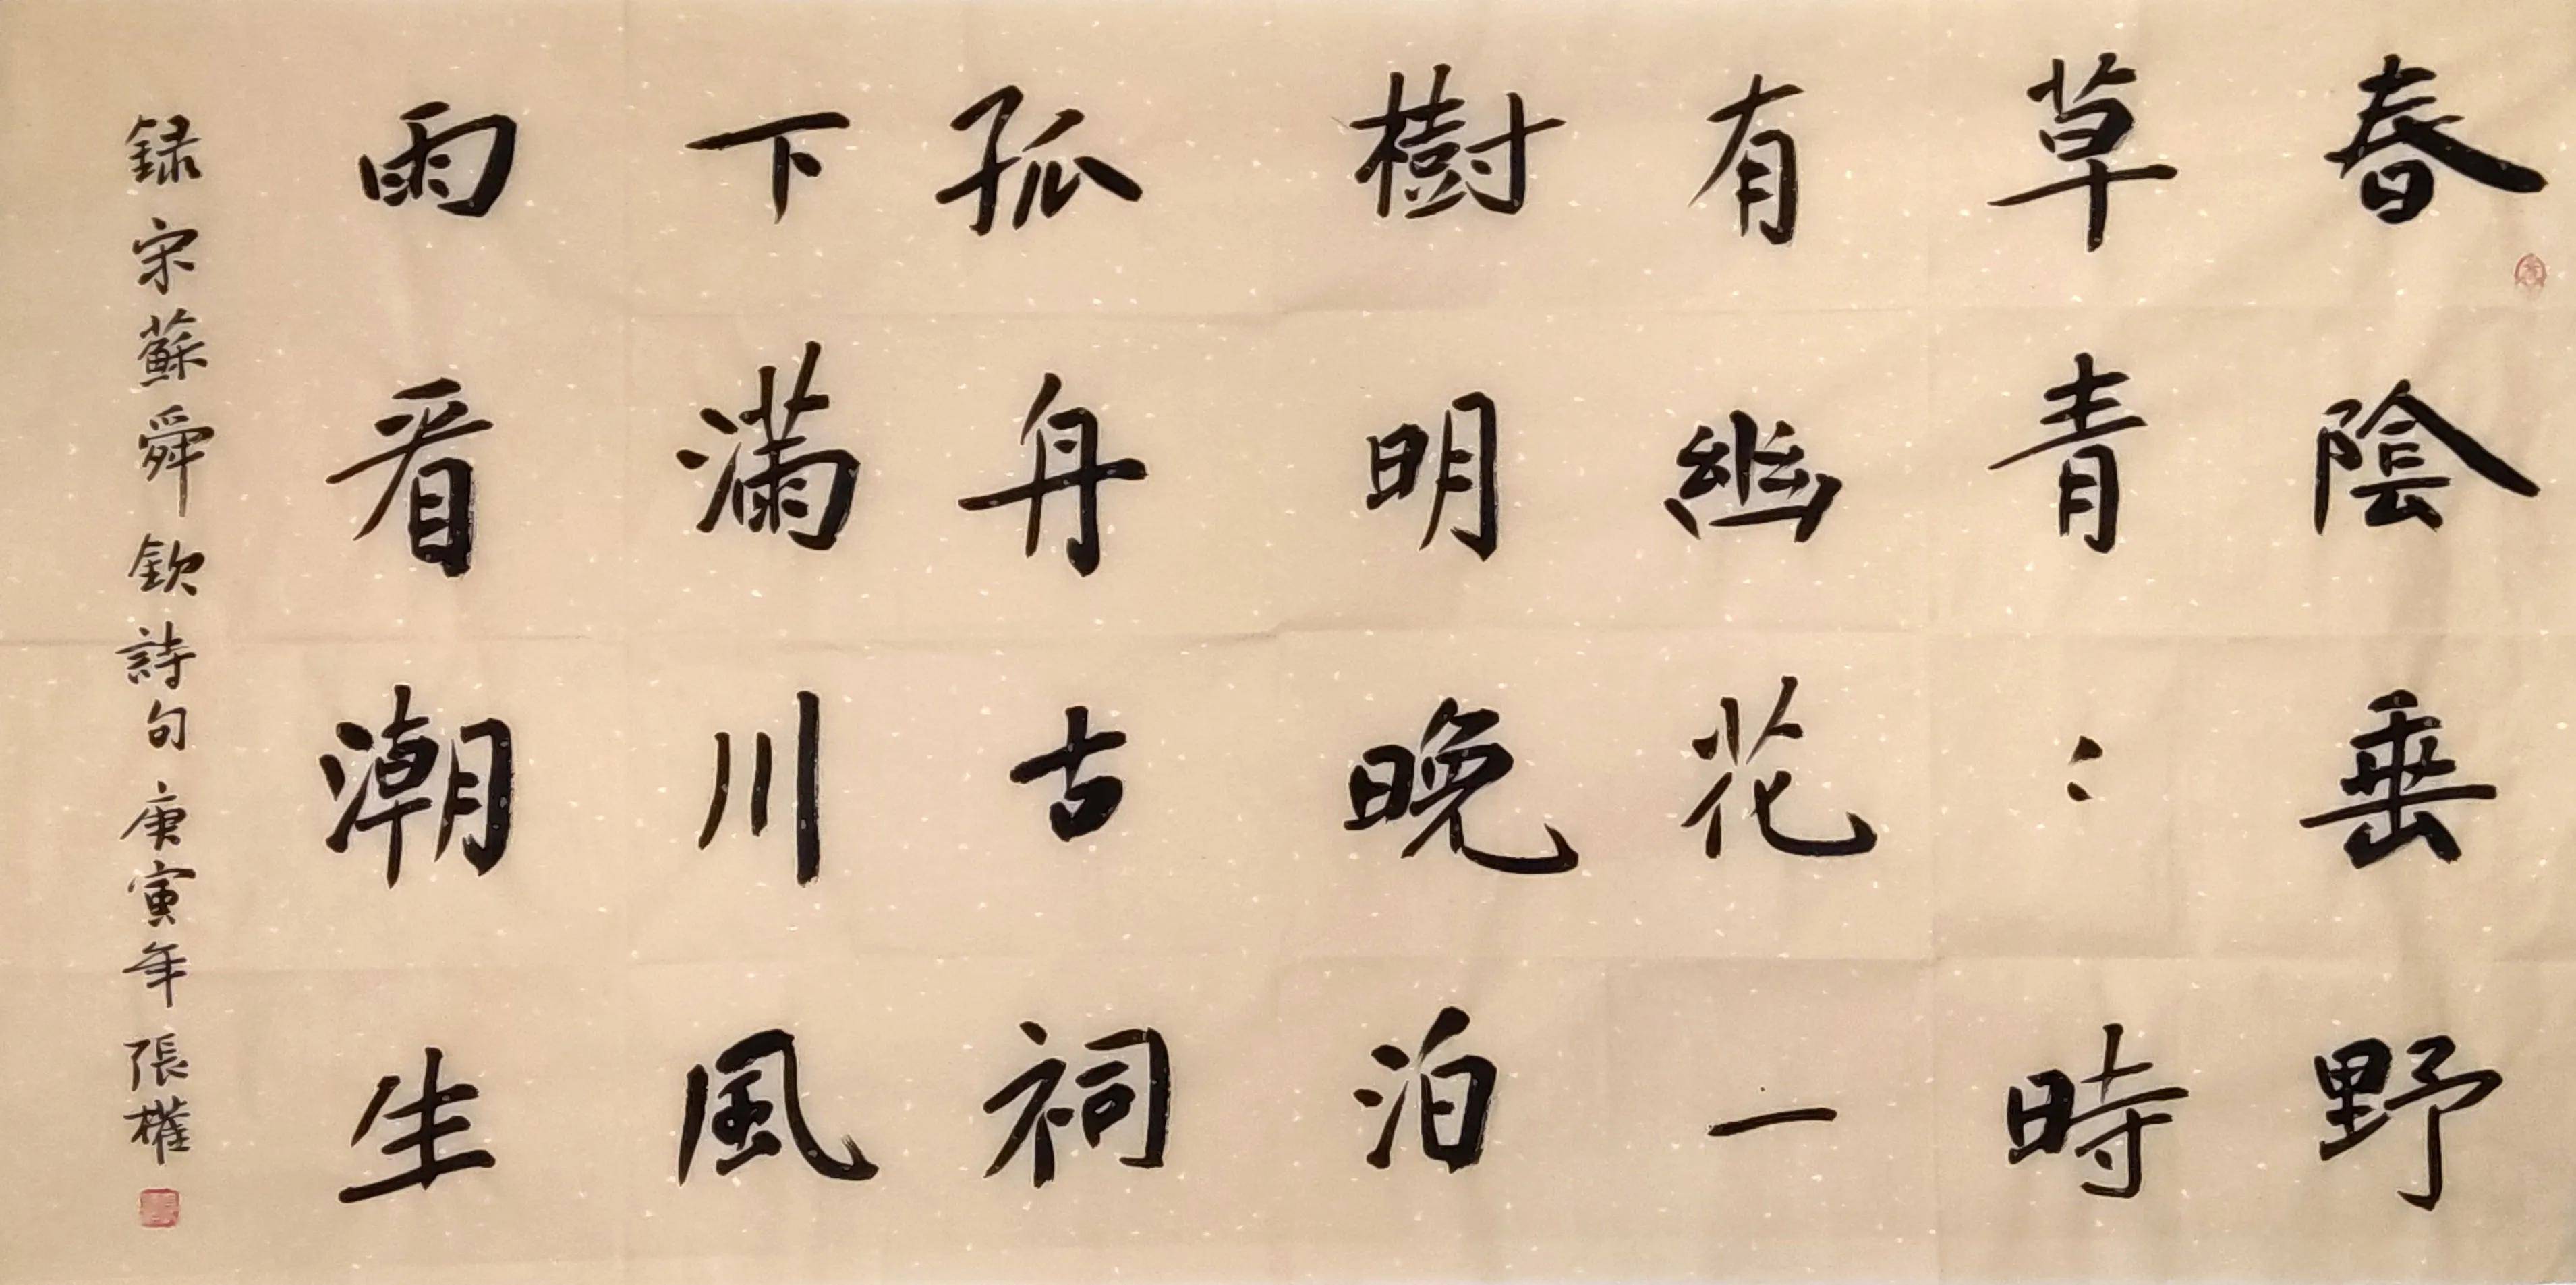 春陰垂野
草青〻時
有幽花一
樹明晚泊
孤舟古祠
下滿川風
雨看潮生
録宋蘇舜欽詩句庚寅年張權